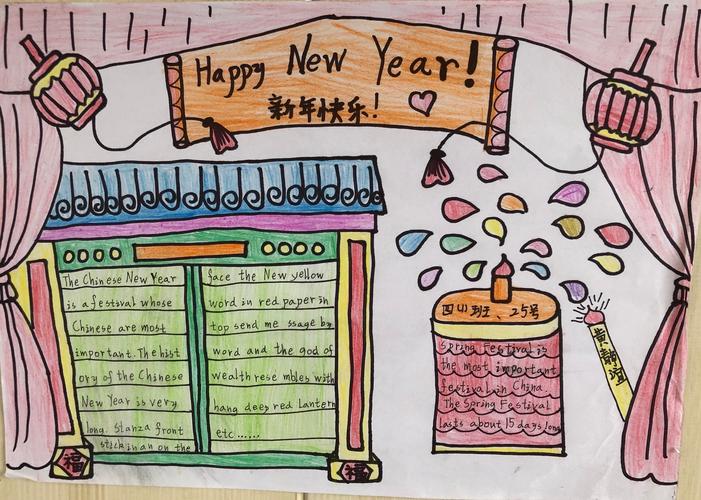 Happy New Year!
新年快乐!
The Chinese New Year
is a festival whose
Chinese are most
important. The hist
ory of the Chinese
New Year is very
long. Stanza front
stick in an on the
face the New yellow
word in red paper in
top send me ssage by
word and the god of
wealth rese mbles with
hang deeg red Lantern
etc......
福
福
四(4)班、25号
Spring Festival is
the most important
festival in China
The Spring Festival
lasts about 15 days long
黄